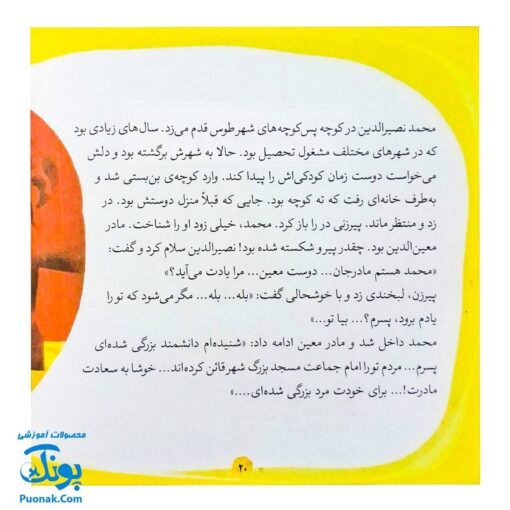 محمد نصیرالدین در کوچه پس‌کوچه‌های شهر طوس قدم می‌زد. سال‌های زیادی بود
که در شهرهای مختلف مشغول تحصیل بود. حالا به شهرش برگشته بود و دلش
می‌خواست دوست زمان کودکی‌اش را پیدا کند. وارد کوچه‌ی بن‌بستی شد و
به‌طرف خانه‌ای رفت که ته کوچه بود. جایی که قبلاً منزل دوستش بود. در
زد و منتظر ماند. پیرزنی در را باز کرد. محمد، خیلی زود او را شناخت. مادر
معین‌الدین بود. چقدر پیر و شکسته شده بود! نصیرالدین سلام کرد و گفت:
«محمد هستم مادرجان... دوست معین... مرا یادت می‌آید؟»
پیرزن، لبخندی زد و با خوشحالی گفت: «بله... بله... مگر می‌شود که تو را
یادم برود، پسرم؟... بیا تو...»
محمد داخل شد و مادر معین ادامه داد: «شنیده‌ام دانشمند بزرگی شده‌ای
پسرم... مردم تو را امام جماعت مسجد بزرگ شهر قائن کرده‌اند... خوشا به سعادت
مادرت!... برای خودت مرد بزرگی شده‌ای....»
۲۰
محصولات آموزشی
پونک
Puonak.Com